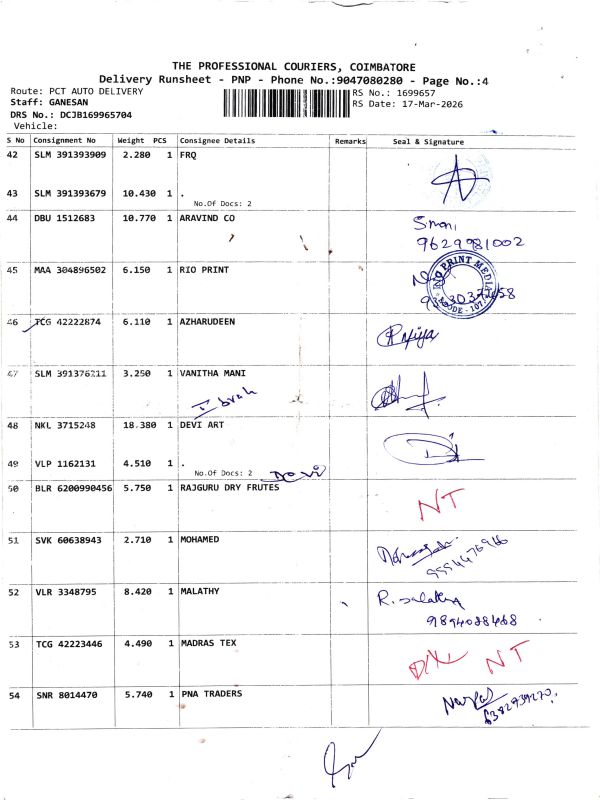 THE PROFESSIONAL COURIERS, COIMBATORE
Delivery Runsheet - PNP - Phone No.:9047080280 - Page No.:4
Route: PCT AUTO DELIVERY
RS No.: 1699657
Staff: GANESAN
RS Date: 17-Mar-2026
DRS No.: DCJB169965704
Vehicle:
S No Consignment No Weight PCS Consignee Details Remarks Seal & Signature
42 SLM 391393909 2.280 1 FRQ
43 SLM 391393679 10.430 1 .
No.Of Docs: 2
44 DBU 1512683 10.770 1 ARAVIND CO
9629981002
45 MAA 304896502 6.150 1 RIO PRINT
RIO PRINT MEDIA
46 TCG 42222874 6.110 1 AZHARUDEEN
47 SLM 391376211 3.250 1 VANITHA MANI
48 NKL 3715248 18.380 1 DEVI ART
49 VLP 1162131 4.510 1 .
No.Of Docs: 2
50 BLR 6200990456 5.750 1 RAJGURU DRY FRUTES
NT
51 SVK 60638943 2.710 1 MOHAMED
52 VLR 3348795 8.420 1 MALATHY
R.
53 TCG 42223446 4.490 1 MADRAS TEX
NT
54 SNR 8014470 5.740 1 PNA TRADERS